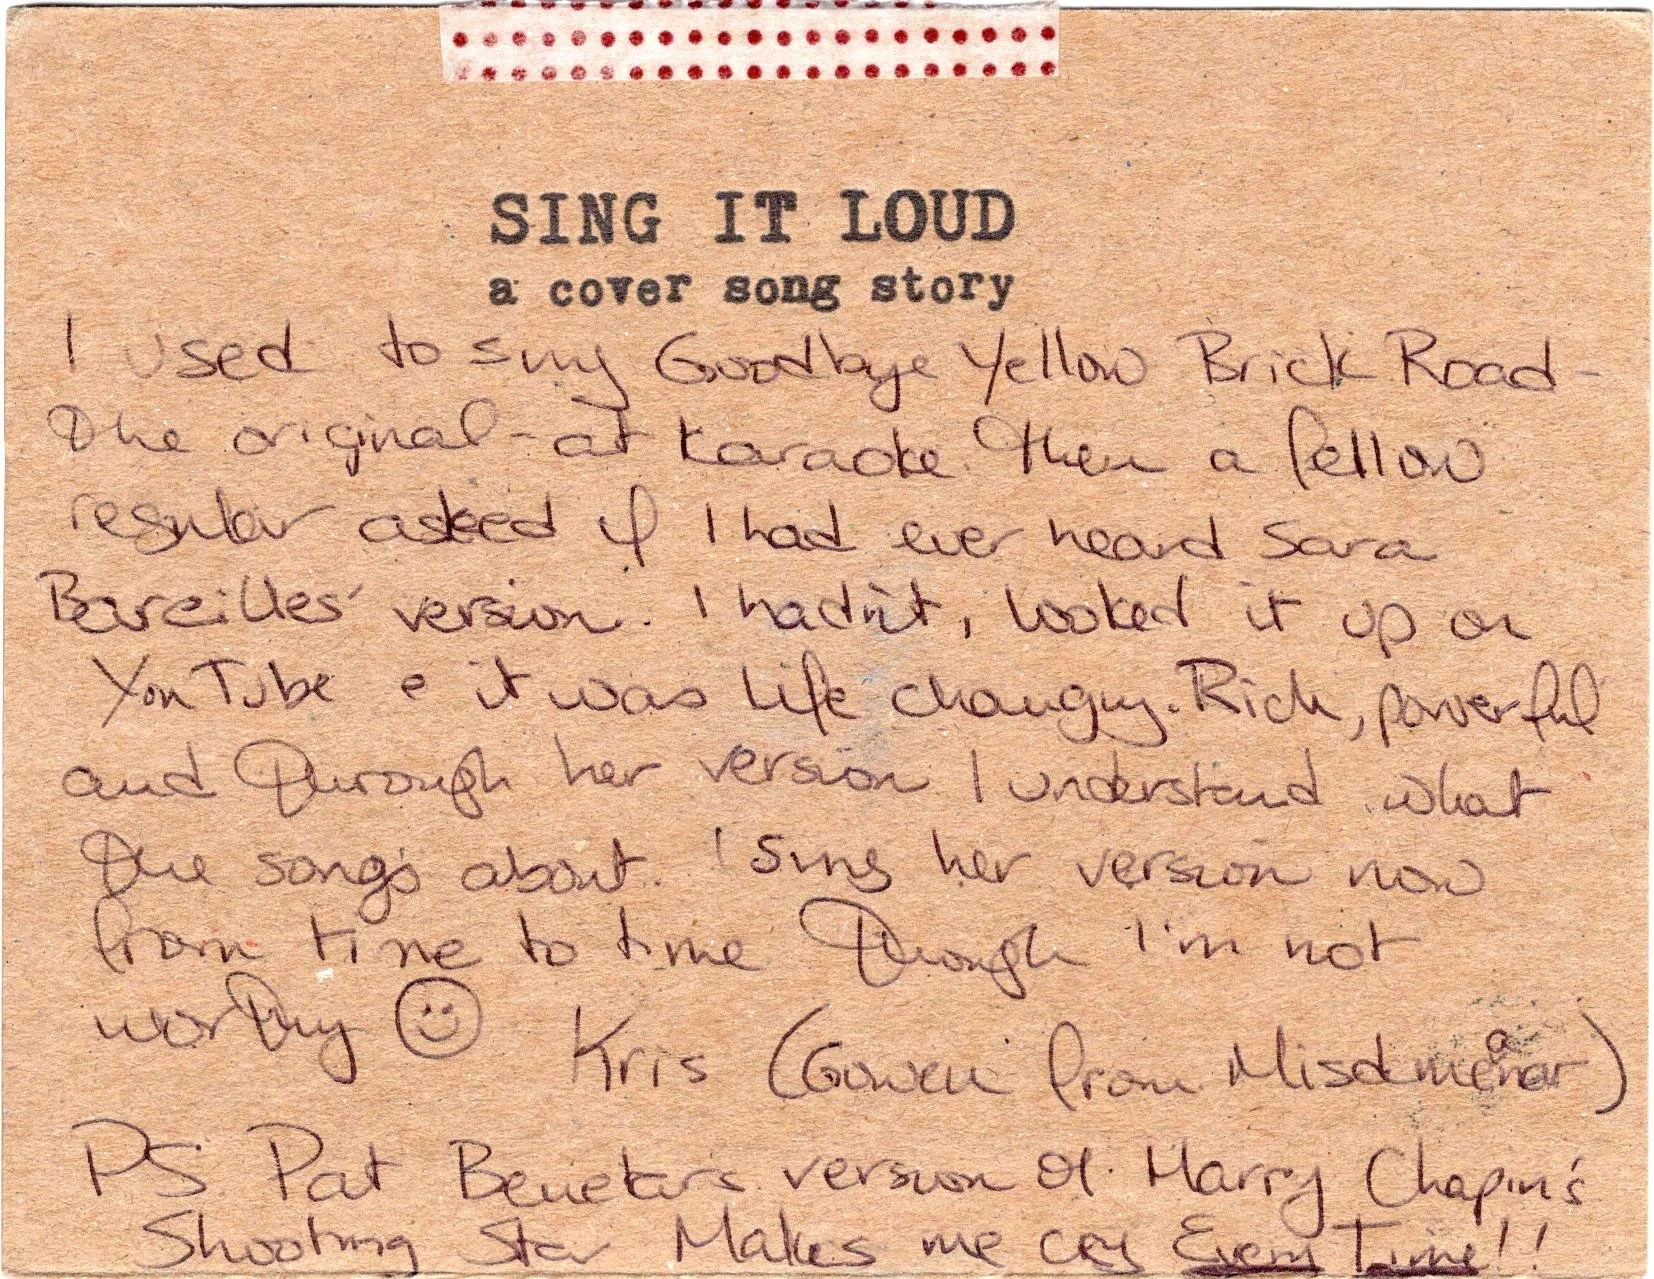 SING IT LOUD
a cover song story
I used to sing Goodbye Yellow Brick Road -
the original - at karaoke. Then a fellow
regular asked if I had ever heard Sara
Bareilles' version. I hadn't, looked it up on
YouTube & it was life changing. Rich, powerful
and through her version I understand what
the song's about. I sing her version now
from time to time though I'm not
worthy ☺ Kris (Gowen from Misdemeanar)
PS. Pat Benetar's version of Harry Chapin's
Shooting Star Makes me cry Every Time!!